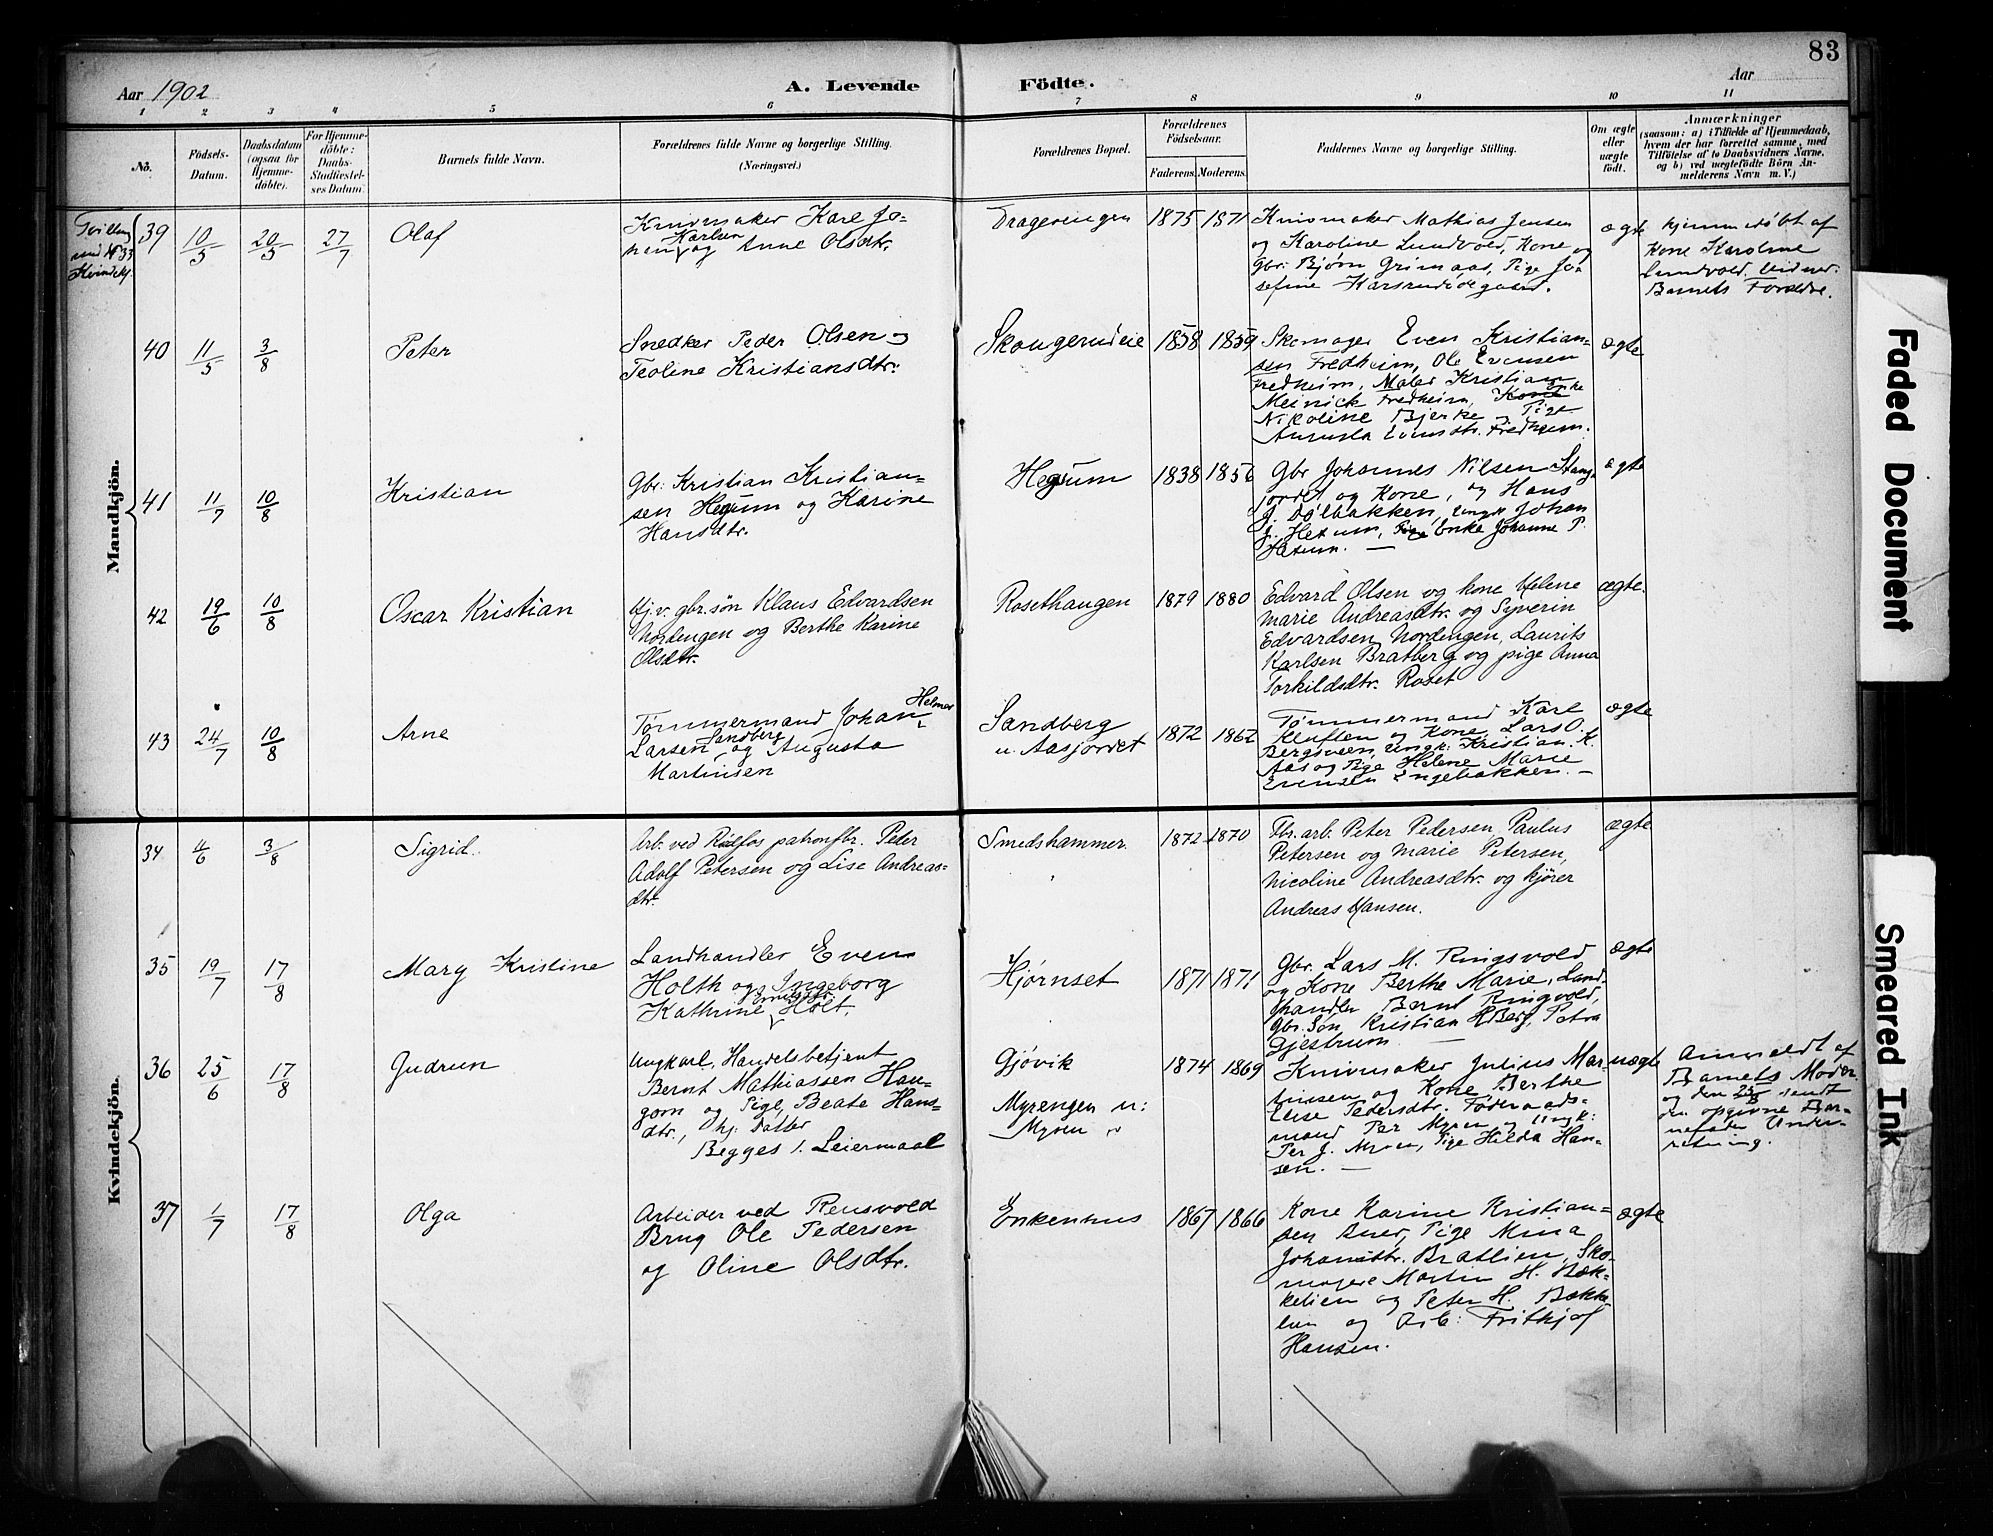 83
Aar 1902
A. Levende Födte.
Aar
1 2 3 4 5 6 7 8 9 10 11
No.
Födsels-
Datum.
Daabsdatum
(ogsaa for
Hjemme-
döbte).
For Hjemme-
döbte:
Daabs-
Stadfæstel-
ses Datum.
Barnets fulde Navn.
Forældrenes fulde Navne og borgerlige Stilling.
(Næringsvei.)
Forældrenes Bopæl.
Forældrenes
Födselsaar.
Faderens. Moderens.
Faddernes Navne og borgerlige Stilling.
Om ægte
eller
uægte
födt.
Anmærkninger
(saasom: a) i Tilfælde af Hjemmedaab,
hvem der har forrettet samme, med
Tilföielse af to Daabsvidners Navne,
og b) ved uægtefödte Börn An-
melderens Navn m. V.)
Mandkjön.
Tvilling
med No 33
Kvindekj.
39 10/5 20/5 27/7
Olaf
Knivmaker Karl Jo-
hen Karlsen og Anne Olsdtr.
Drageningen
1875 1871
Knivmaker Mathias Jensen
og Karoline Lundvold, Kone og
Gbr. Bjørn Grimaas, Pige Jo-
sefine Karsrudødegaard.
ægte
Hjemmedøbt af
Kone Karoline
Lundvold. Vidner:
Barnets Forældre.
40 11/5 3/8
Peter
Snedker Peder Olsen og
Teoline Kristiansdtr.
Skougerudeie
1858 1859
Skomager Even Kristian-
sen Fredheim, Ole Evensen
Fredheim, Maler Kristian
Meinick Fredheim, Kone
Nikoline Bjerke og Pige
Augusta Evensdtr. Fredheim.
ægte
41 11/7 10/8
Kristian
Gbr. Kristian Kristian-
sen Hexum og Karine
Hansdtr.
Hexum
1838 1856
Gbr Johannes Nilsen Stang-
jordet og Kone, og Hans
J. Dølbakken, Ungk. Johan
J. Hexum, Enke Johanne P.
Hexum.
ægte
42 19/6 10/8
Oscar Kristian
Hjv. gbr. søn Klaus Edvardsen
Nordengen og Berthe Karine
Olsdtr.
Rosethaugen
1879 1880
Edvard Olsen og kone Helene
Marie Andreasdtr. og Syverin
Edvardsen Nordengen, Laurits
Karlsen Bratberg og pige Anna
Torkildsdtr. Roset
ægte.
43 24/7 10/8
Arne
Tømmermand Johan Helmer
Larsen Sandberg og Augusta
Martinsen
Sandberg
u. Aasjordet
1872 1862
Tømmermand Karl
Kluften og Kone, Lars O.
Bergsveen, Ungk. Kristian K.
Aas og Pige Helene Marie
Evensen Engebakken.
ægte
Kvindekjön.
34 4/6 3/8
Sigrid.
Arb. ved Rødfos patronfbr. Peter
Adolf Petersen og Lise Andreas-
dtr.
Smedshammer
1872 1870
Fbr. arb. Peter Pedersen, Paulus
Petersen og Marie Petersen,
Nicoline Andreasdtr. og kjører
Andreas Hansen.
ægte
35 19/7 17/8
Mary Kristine
Landhandler Even
Holth og Ingeborg
Kathrine Holt.
Hjørnset
1871 1871
Gbr. Lars M. Ringsvold
og Kone Berthe Marie, Land-
handler Bernt Ringvold,
Gbr. Søn Kristian H Berg, Petra
Gjestrum
ægte
36 25/6 17/8
Gudrun
Ungkarl, Handelsbetjent
Bernt Mathiassen Hau-
gom og Pige, Beate Hans-
dtr., hj. Datter
Begges 1. Leiermaal
Gjøvik
Myrengen u:
Myren
1874 1869
Knivmaker Julius Mar-
tinsen og Kone Berthe
Lise Pedersdtr. Føderaads-
mand Per Myren og Ungk:
Per J. Myren, Pige Hilda Han-
sen.
uægte
Anmeldt af
Barnets Moder
og den 25/8 sendt
den opgivne Bar-
nefader Under-
retning.
37 1/7 17/8
Olga
Arbeider ved Rensvold
Brug Ole Pedersen
og Oline Olsdtr.
Enkenhus
1867 1866
Kone Karine Kristian-
sen Auer, Pige Mina
Johansdtr. Bratlien, Sko-
magere Martin H. Bæk-
kelien og Peter H. Bække-
lien og Arb: Frithjof
Hansen.
ægte
Faded Document
Smeared Ink